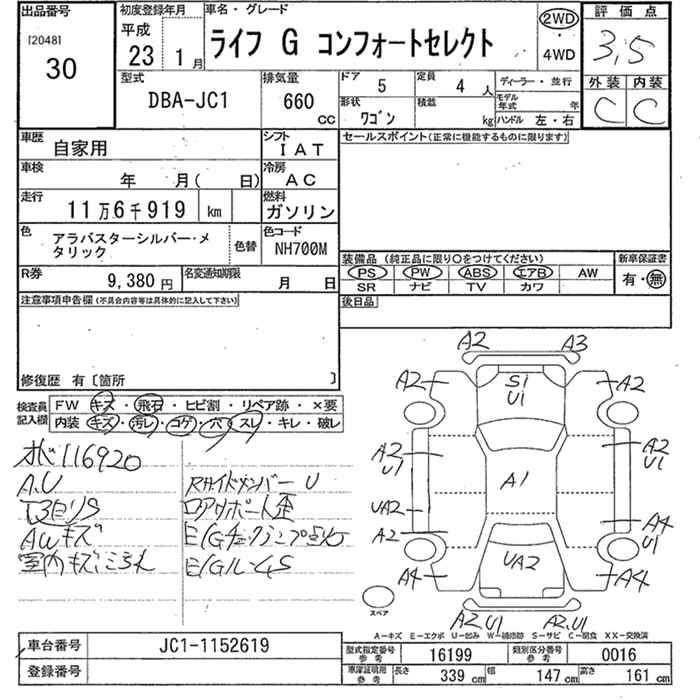 出品番号
[2048]
30
初度登録年月
平成
23 1月
車名・グレード
ライフ G コンフォートセレクト
2WD
・
4WD
評価点
3.5
外装 内装
C C
型式
DBA-JC1
排気量
660 cc
ドア 5
定員 4 人
形状 ワゴン
積載 kg
ディーラー・並行
モデル年式 年
ハンドル 左・右
車歴 自家用
シフト IAT
車検 年 月( 日)
冷房 AC
走行 11万6千919 km
燃料 ガソリン
色 アラバスターシルバー・メタリック
色替
色コード NH700M
R券 9,380円
名変通知期限 月 日
セールスポイント(正常に機能するものに限ります)
装備品(純正品に限り○をつけてください)
PS PW ABS エアB AW
SR ナビ TV カワ
新車保証書
有・無
後日品
注意事項申告欄(不具合内容等は具体的に記入して下さい)
修復歴 有〔箇所 〕
検査員記入欄
FW キズ・飛石・ヒビ割・リペア跡・×要
内装 キズ・汚レ・コゲ・穴・スレ・キレ・破レ
116920
A.U
AWキズ
室内キズ
RサイドメンバーU
ロアサポート歪
A2 A3
A2 S1 U1 A2
A2 U1 A2 U1
A1
UA2
A2 A4 U1
A4 UA2 A4
A2.U1 A2.U1
スペア
A-キズ E-エクボ U-凹み W-補修跡 S-サビ C-腐食 XX-交換済
車台番号 JC1-1152619
登録番号
型式指定番号 参考 16199
類別区分番号 参考 0016
車庫証明用 参考 長さ 339 cm 幅 147 cm 高さ 161 cm